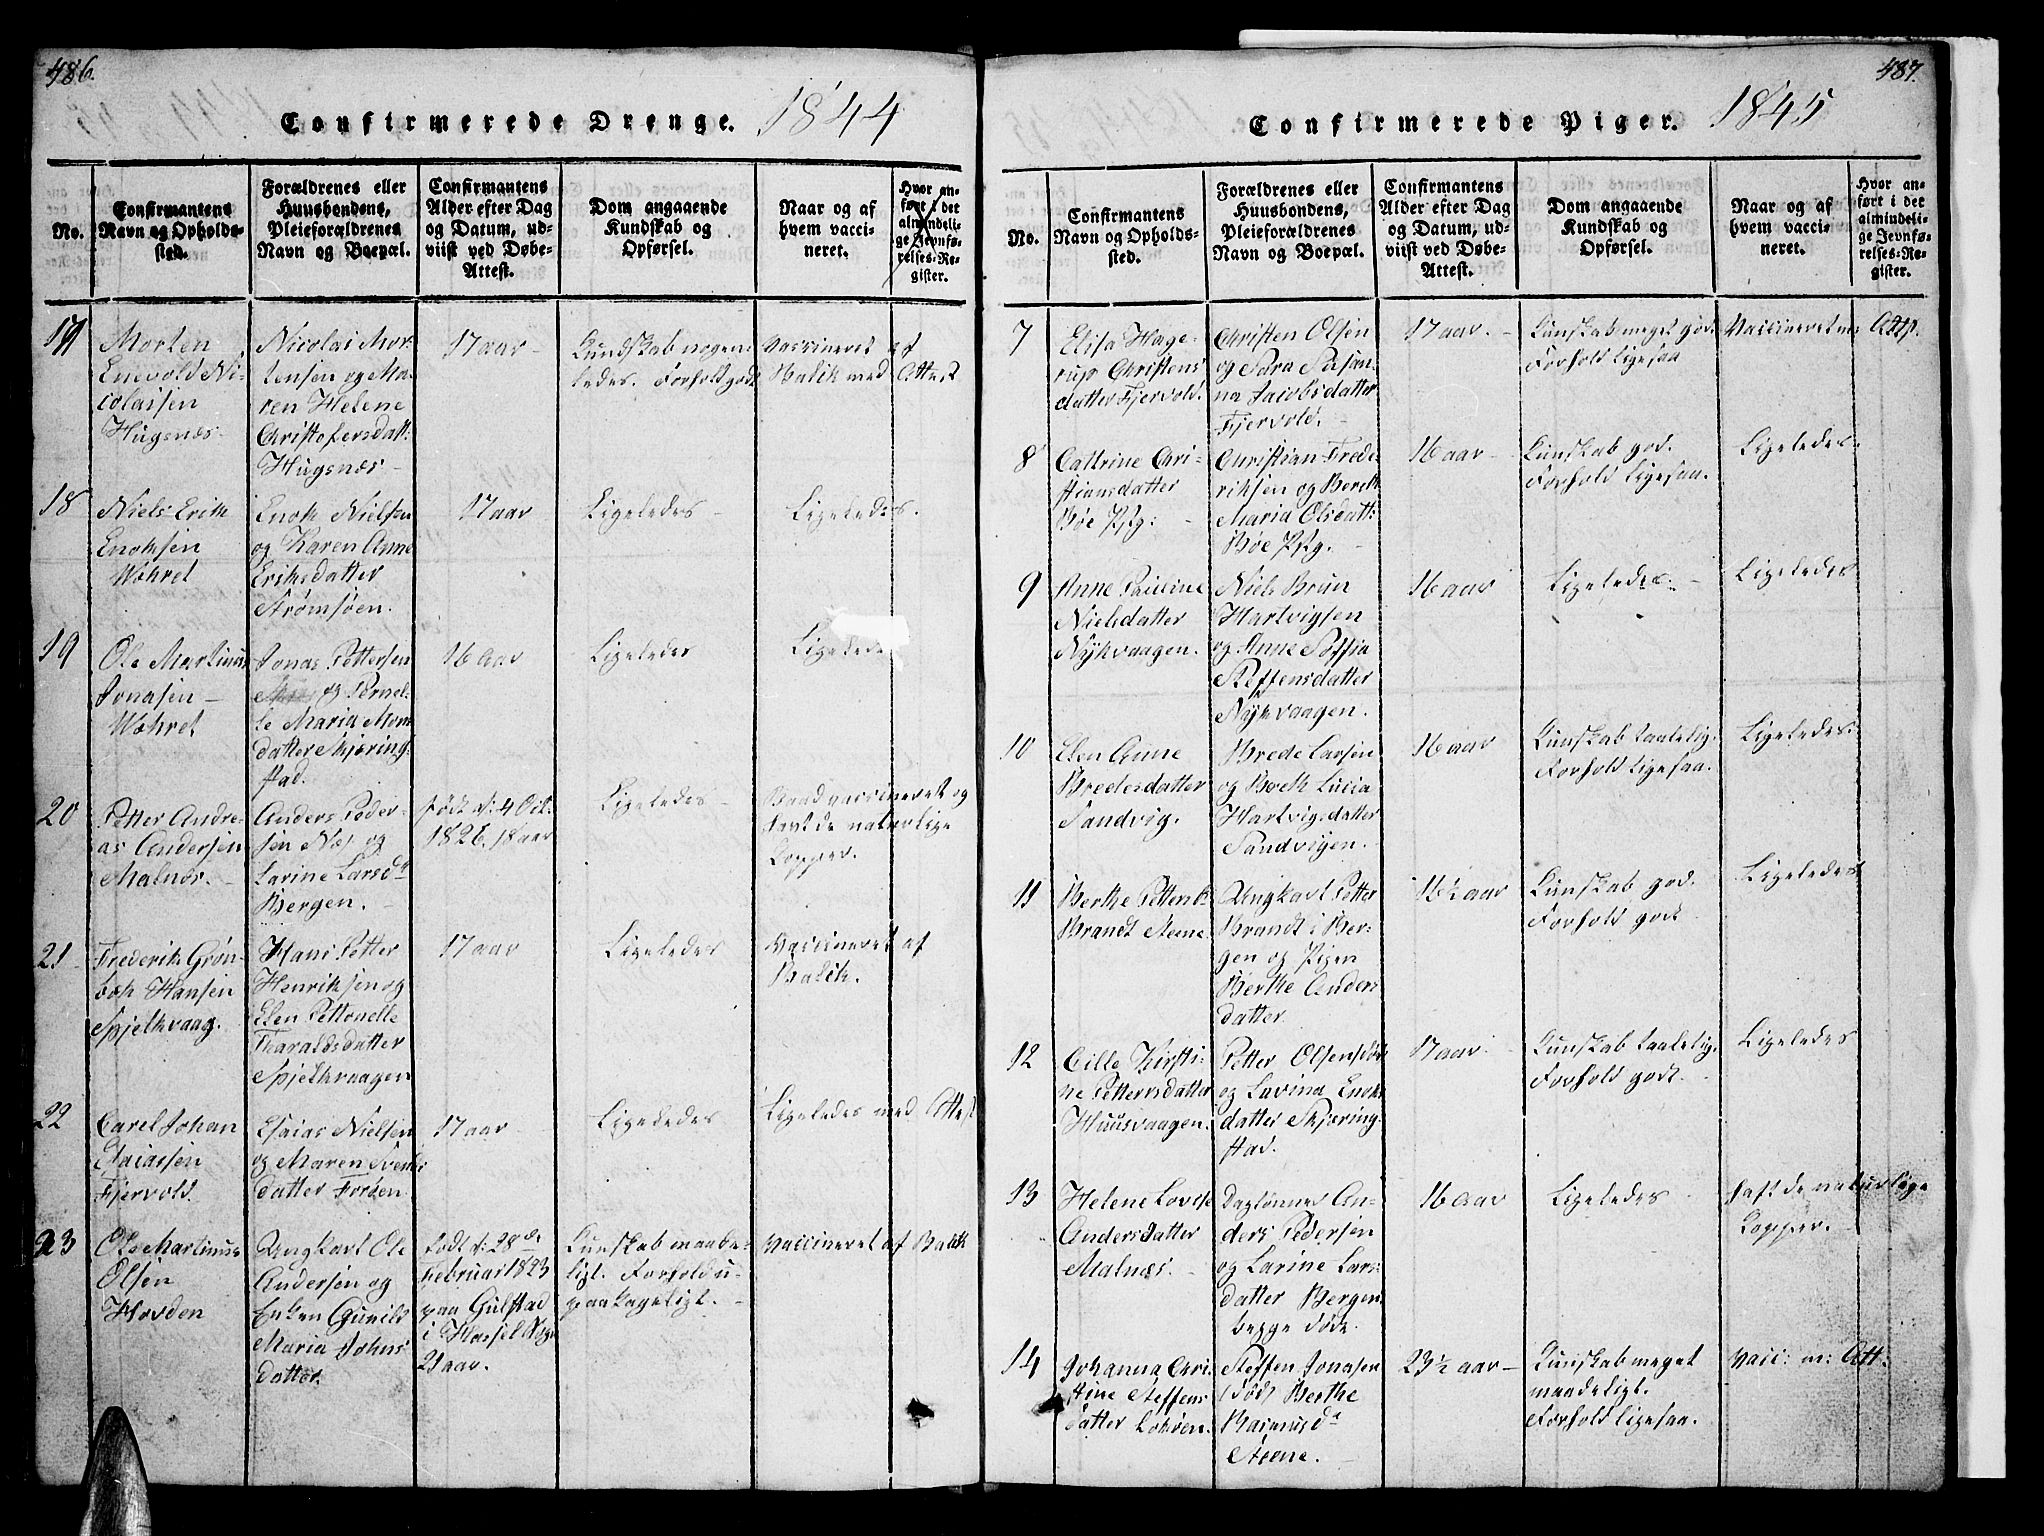 486.
Confirmerede Drenge. 1844
No.
Confirmantens
Navn og Opholds-
sted.
Forældrenes eller
Huusbondens,
Pleieforældrenes
Navn og Boepæl.
Confirmantens
Alder efter Dag
og Datum, ud-
viist ved Døbe-
Attest.
Dom angaaende
Kundskab og
Opførsel.
Naar og af
hvem vacci-
neret.
Hvor an-
ført i det
almindeli-
ge Jevnfø-
relses-Re-
gister.
17
Morten
Enevold Ni-
colaisen
Hugsnæs
Nicolai Mor-
tensen og Ma-
ren Helene
Christofersdatt:
Hugsnæs -
17 aar -
Kundskab nogen-
ledes. Forhold godt
Vaccineret af
Balch med Attest
18
Niels Erik
Enoksen
Wahret
Enok Nielsen
og Karen Anne
Eriksdatter
Strømsøen.
17 aar
Ligeledes -
Ligeledes.
19
Ole Martinus
Jonasen -
Wahret
Jonas Pettersen
og Pernel-
le Maria Mons
datter Skjæring-
stad.
16 aar
Ligeledes
Ligeledes
20
Petter Andre-
as Andersen
Malnæs. -
Anders Peder-
sen Næs og
Larine Larsdr
Bergen. -
født d: 4 Oct:
1826. 18 aar
Ligeledes -
havt de naturlige
Kopper.
21
Frederik Grøn-
bek Hansen
Spjelkvaag.
Hans Petter
Henriksen og
Elen Pettonelle
Tharaldsdatter
Spjelkvaagen
17 aar
Ligeledes
Vaccineret af
Balch.
22
Carel Johan
Esaiassen
Fjervold
Esaias Nielsen
og Maren Svends
datter Forøen
17 aar -
Ligeledes
Ligeledes med Attest
23
Ole Martinus
Olsen
Hovden
Ungkarl Ole
Andersen og
Enken Gunild
Maria Johns
datter.
født d: 28de
Februar 1823
paa Gulstad
i Hassel Sogn
21 aar.
Kunskab maade-
ligt. Forhold u-
paaklageligt. -
Vaccineret af Balch
487.
Confirmerede Piger. 1845
No.
Confirmantens
Navn og Opholds-
sted.
Forældrenes eller
Huusbondens,
Pleieforældrenes
Navn og Boepæl.
Confirmantens
Alder efter Dag
og Datum, ud-
viist ved Døbe-
Attest.
Dom angaaende
Kundskab og
Opførsel.
Naar og af
hvem vacci-
neret.
Hvor an-
ført i det
almindeli-
ge Jevnfø-
relses-Re-
gister.
7
Elisa Hage-
rup Christens
datter Fjervold.
Christen Olsen
og Sara Susan-
na Jacobsdatter
Fjervold. -
17 aar. -
Kunskab meget god.
Forhold ligesaa
Vaccineret m: Atts.
8
Cattrine Chri-
stiansdatter
Bøe Pstg: -
Christian Frede-
riksen og Bereth
Maria Olsdatt:
Bøe Pstg. -
16 aar -
Kunskab god.
Forhold ligesaa.
Ligeledes.
9
Anne Pauline
Nielsdatter
Nykvaagen.
Niels Brun
Hartvigsen
og Anne Soffia
Steffensdatter
Nykvaagen.
16 aar
Ligeledes. -
Ligeledes
10
Elen Anne
Bredesdatter
Sandvig.
Brede Larsen
og Breth Lucia
Hartvigsdatter
Sandvigen.
16 aar
Kunskab taalelig.
Forhold ligesaa.
Ligeledes.
11
Berthe
Brandt Steene
Ungkarl Petter
Brandt i Ber-
gen og Pigen
Berthe Anders
datter.
16½ aar
Kunskab god.
Forhold godt
Ligeledes
12
Cille Kirsti-
ne Pettersdatter
Huusvaagen.
Petter Olsen død
og Lavina Enoks
datter Skjæring-
stad.
17 aar.
Kunskab taalelig.
Forhold godt.
Ligeledes
13
Helene Lovise
Andersdatter
Malnæs. -
Daglønner An-
ders Pedersen
og Larine Lars
datter Bergen
begge døde
16 aar
Ligeledes
havt de naturlige
Kopper. -
14
Johanna Chri-
stine Steffens
datter
Steffen Jonasen
(død) Berthe
Rasmusdr
Steene. -
23½ aar -
Kunskab meget
maadeligt.
Forhold ligesaa.
Vacc: m: Att.